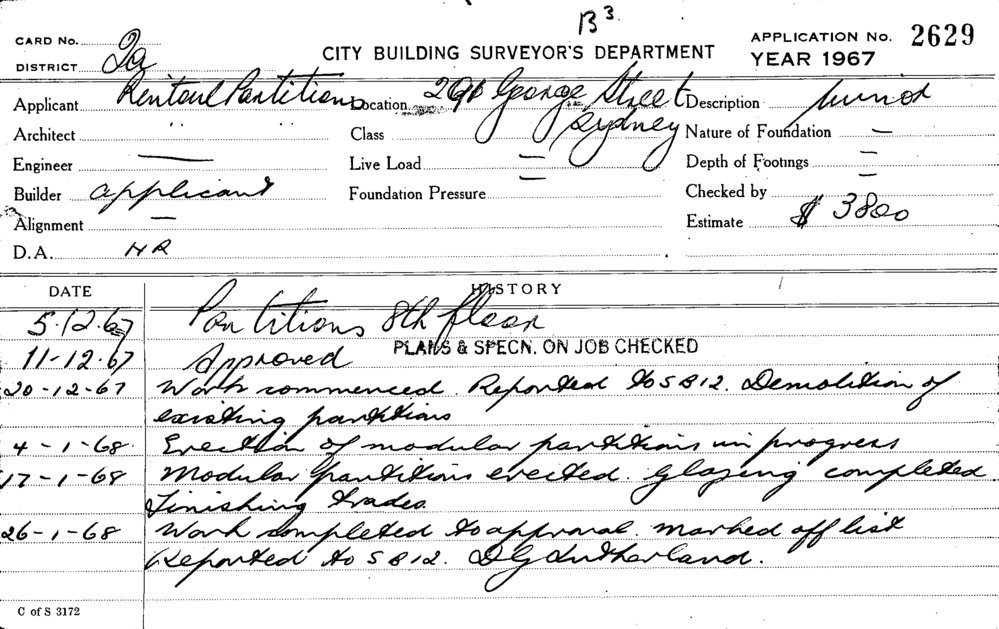 B3.
CARD No.
DISTRICT 2a
CITY BUILDING SURVEYOR'S DEPARTMENT
APPLICATION No. 2629
YEAR 1967
Applicant Rentoul Partitions Location George Street Sydney Description minor
Architect Class Nature of Foundation —
Engineer — Live Load — Depth of Footings —
Builder applicant Foundation Pressure — Checked by —
Alignment — Estimate $ 3800
D.A. NR
DATE HISTORY
5.12.67 Partitions 8th floor
11-12.67 Approved PLANS & SPECN. ON JOB CHECKED
20-12-67 Work commenced. Reported to SB12. Demolition of
existing partitions
4-1-68. Erection of modular partitions in progress
17-1-68 Modular partitions erected. Glazing completed.
Finishing trades.
26-1-68 Work completed to approval. Marked off list
Reported to SB12. DG Sutherland.
C of S 3172